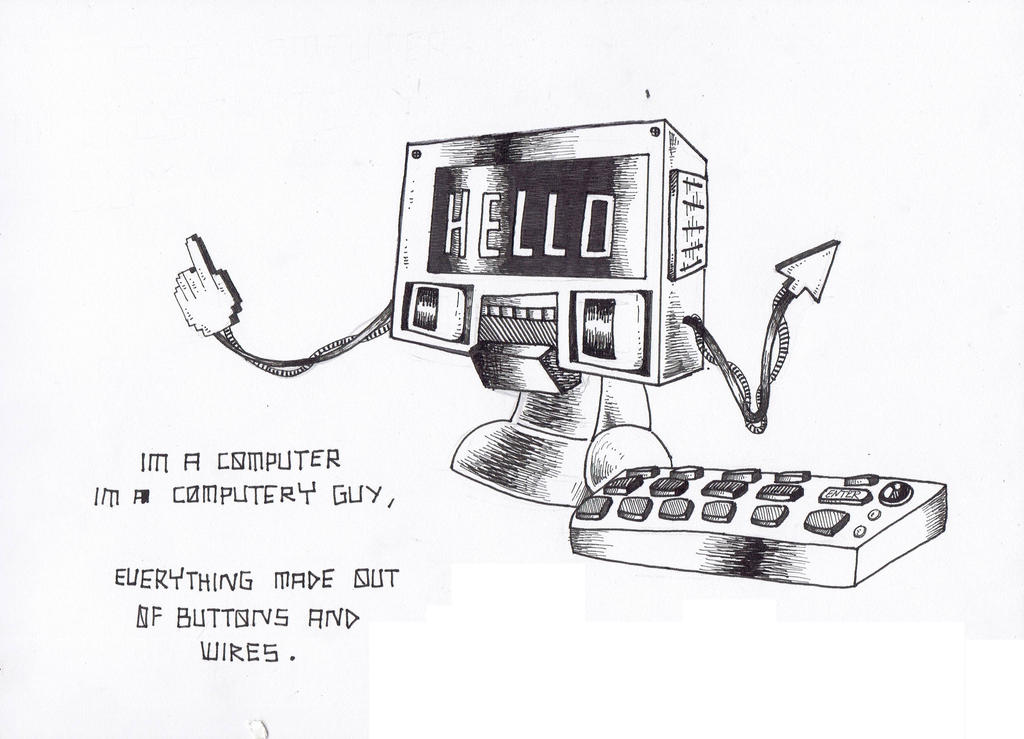 HELLO
ENTER
IM A COMPUTER
IM A COMPUTERY GUY,
EVERYTHING MADE OUT
OF BUTTONS AND
WIRES.